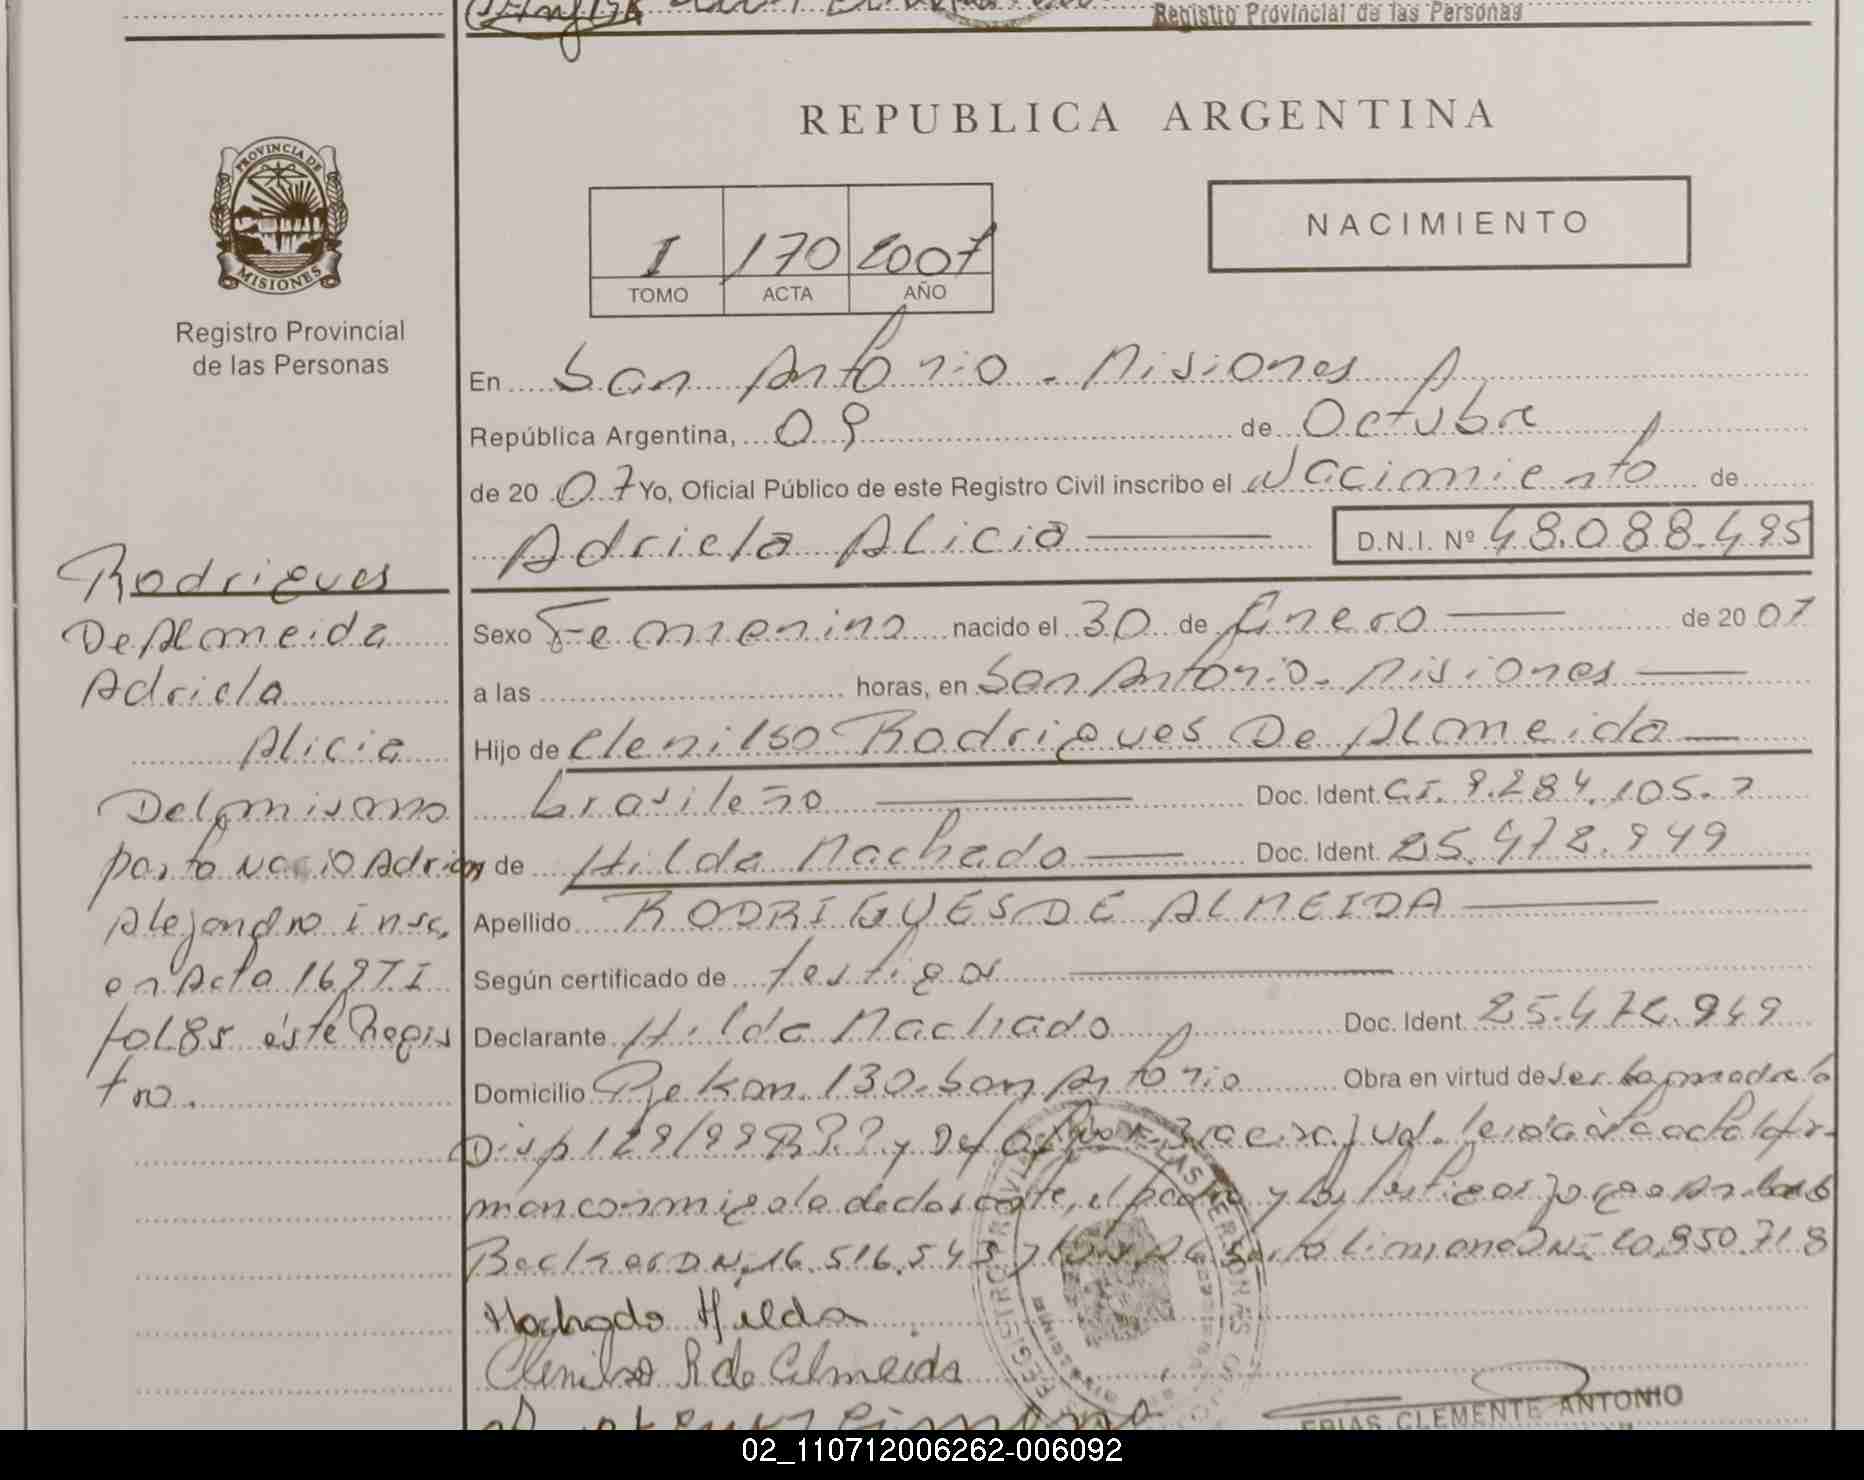 Registro Provincial de las Personas
PROVINCIA DE
MISIONES
Registro Provincial
de las Personas
REPUBLICA ARGENTINA
NACIMIENTO
I 170 2007
TOMO ACTA AÑO
En San Antonio - Misiones
República Argentina, 09 de Octubre
de 2007 Yo, Oficial Público de este Registro Civil inscribo el Nacimiento de
Adriela Alicia D.N.I. Nº 48.088.495
Sexo Femenino nacido el 30 de Enero de 2007
a las horas, en San Antonio - Misiones
Hijo de Clenilso Rodrigues De Almeida
brasileño Doc. Ident C.I. 9.284.105.7
y de Hilda Machado Doc. Ident. 25.472.949
Apellido RODRIGUES DE ALMEIDA
Según certificado de testigos
Declarante Hilda Machado Doc. Ident. 25.472.949
Domicilio Pje Km. 130. San Antonio Obra en virtud de ser la madre la
Disp 129/99 R.P.P. y Leida el acta la fir-
man conmigo la declarante, el padre y los testigos
Becker DN. 16.516.543 y 20.950.718
Machado Hilda
Clenilso R de Almeida
FRIAS CLEMENTE ANTONIO
Rodrigues
De Almeida
Adriela
Alicia
Del mismo
parto nacio Adrian
Alejandro insc.
en Acta 169 T I
fol 85 éste Regis
tro.
02_110712006262-006092